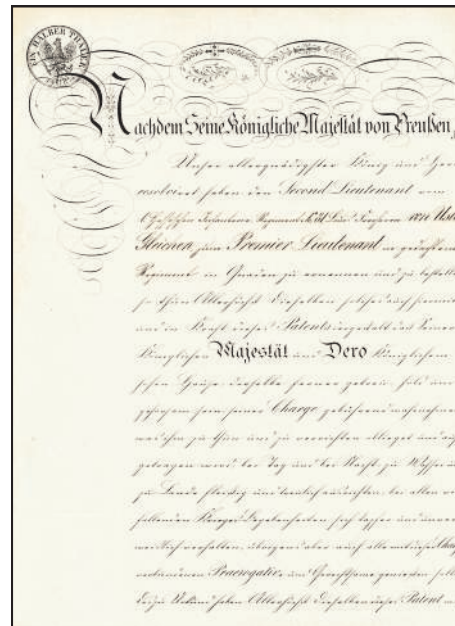 EIN HALBER THALER
Nachdem Seine Königliche Majestät von Preußen,
Unser allergnädigster König und Herr
resolviret haben den Second Lieutenant vom
Infanterie Regiment von Usl
Gleichen, zum Premier Lieutenant
Regiment in Gnaden zu ernennen und zu bestellen
so thun Allerhöchst Dieselben solches auch hiermit
und in Kraft dieses Patents dergestalt daß Seiner
Königlichen Majestät und Dero Königlichem
schen Hause derselbe ferner getreu, hold und
gehorsam sein, seiner Charge gebührend wahrnehmen
was ihm zu thun und zu verrichten oblieget und auf
getragen wird, bei Tag und bei Nacht, zu Wasser und
zu Lande fleißig und treulich ausrichten, bei allen vor
fallenden Krieges Begebenheiten sich tapfer und unver
weislich verhalten, übrigens aber auch alle mit dieser Charge
verbundenen Praerogative und Gerechtsame genießen soll
Dessen zu Urkund haben Allerhöchst Dieselben dieses Patent